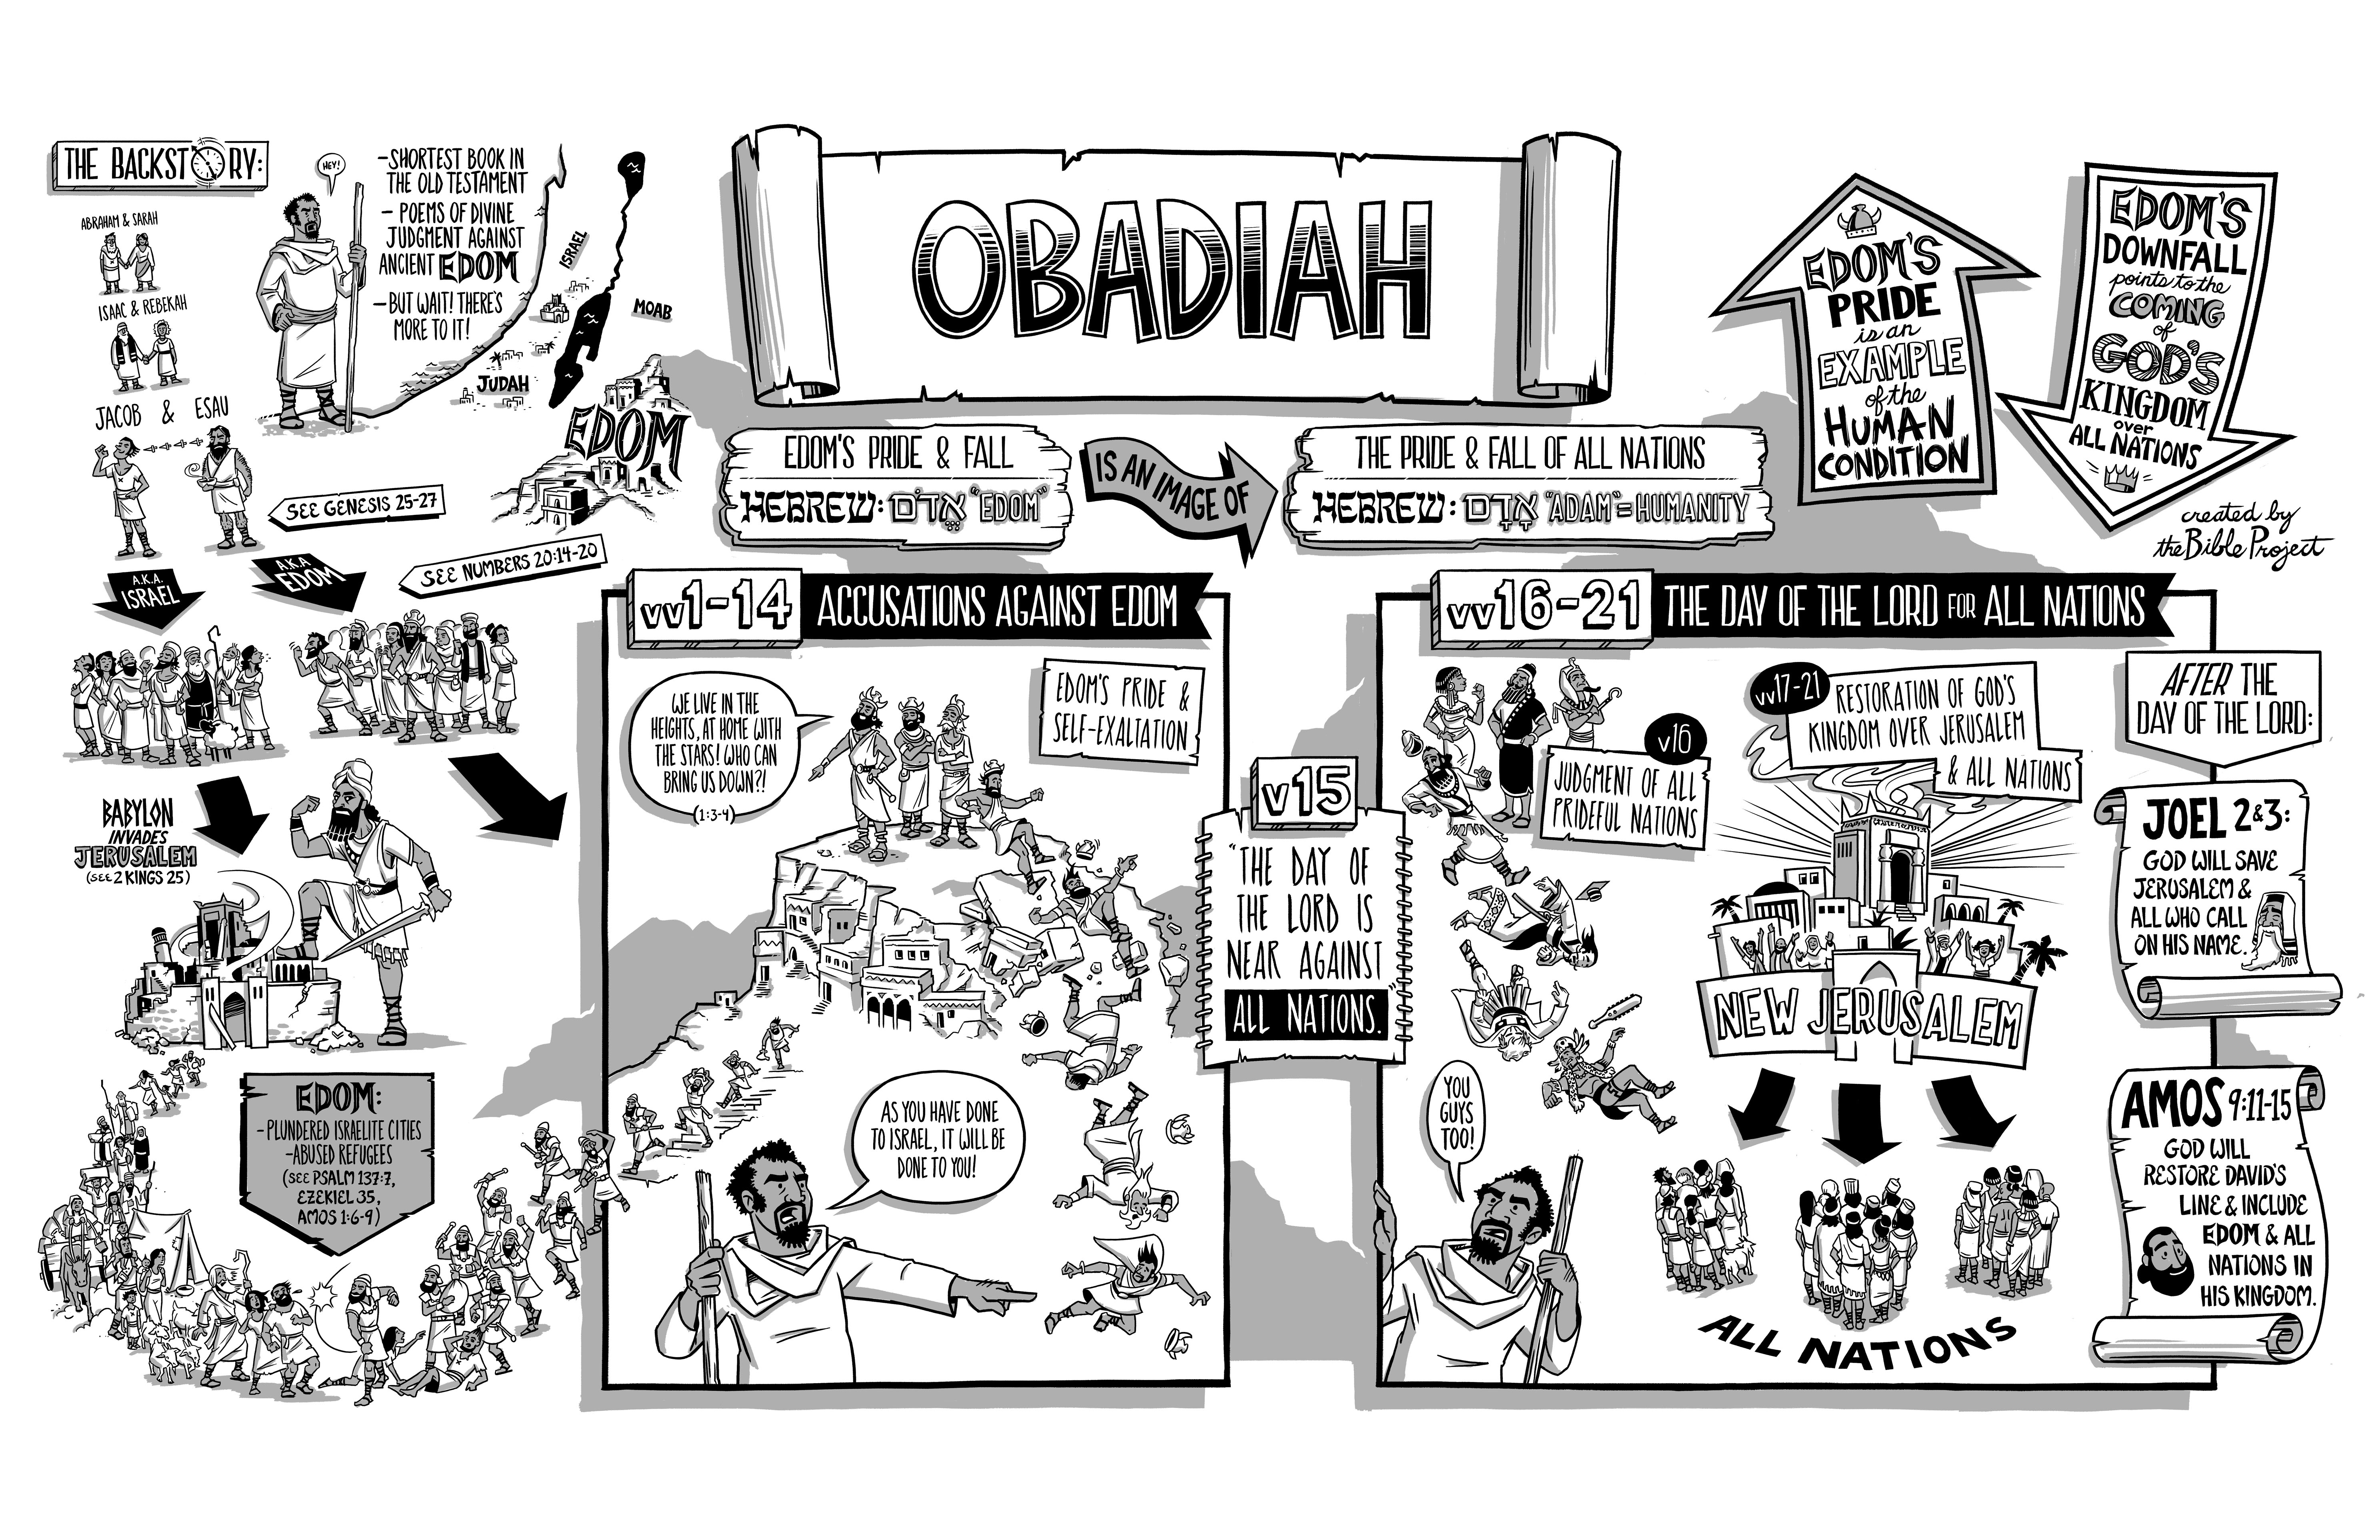 THE BACKSTORY:
ABRAHAM & SARAH
ISAAC & REBEKAH
JACOB & ESAU
SEE GENESIS 25-27
A.K.A.
ISRAEL
A.K.A
EDOM
SEE NUMBERS 20:14-20
HEY!
-SHORTEST BOOK IN
THE OLD TESTAMENT
- POEMS OF DIVINE
JUDGMENT AGAINST
ANCIENT EDOM
-BUT WAIT! THERE'S
MORE TO IT!
ISRAEL
MOAB
JUDAH
EDOM
BABYLON
INVADES
JERUSALEM
(SEE 2 KINGS 25)
EDOM:
-PLUNDERED ISRAELITE CITIES
-ABUSED REFUGEES
(SEE PSALM 137:7,
EZEKIEL 35,
AMOS 1:6-9)
OBADIAH
EDOM'S PRIDE & FALL
HEBREW: אֱדֹום "EDOM"
IS AN IMAGE OF
THE PRIDE & FALL OF ALL NATIONS
HEBREW: אָדָם "ADAM"=HUMANITY
EDOM'S
PRIDE
is an
EXAMPLE
of the
HUMAN
CONDITION
EDOM'S
DOWNFALL
points to the
COMING
of
GOD'S
KINGDOM
over
ALL NATIONS
created by
the Bible Project
vv1-14 ACCUSATIONS AGAINST EDOM
WE LIVE IN THE
HEIGHTS, AT HOME WITH
THE STARS! WHO CAN
BRING US DOWN?!
(1:3-4)
EDOM'S PRIDE &
SELF-EXALTATION
AS YOU HAVE DONE
TO ISRAEL, IT WILL BE
DONE TO YOU!
v15
"THE DAY OF
THE LORD IS
NEAR AGAINST
ALL NATIONS."
vv16-21 THE DAY OF THE LORD FOR ALL NATIONS
v16
JUDGMENT OF ALL
PRIDEFUL NATIONS
vv17-21
RESTORATION OF GOD'S
KINGDOM OVER JERUSALEM
& ALL NATIONS
NEW JERUSALEM
YOU
GUYS
TOO!
ALL NATIONS
AFTER THE
DAY OF THE LORD:
JOEL 2&3:
GOD WILL SAVE
JERUSALEM &
ALL WHO CALL
ON HIS NAME.
AMOS 9:11-15
GOD WILL
RESTORE DAVID'S
LINE & INCLUDE
EDOM & ALL
NATIONS IN
HIS KINGDOM.